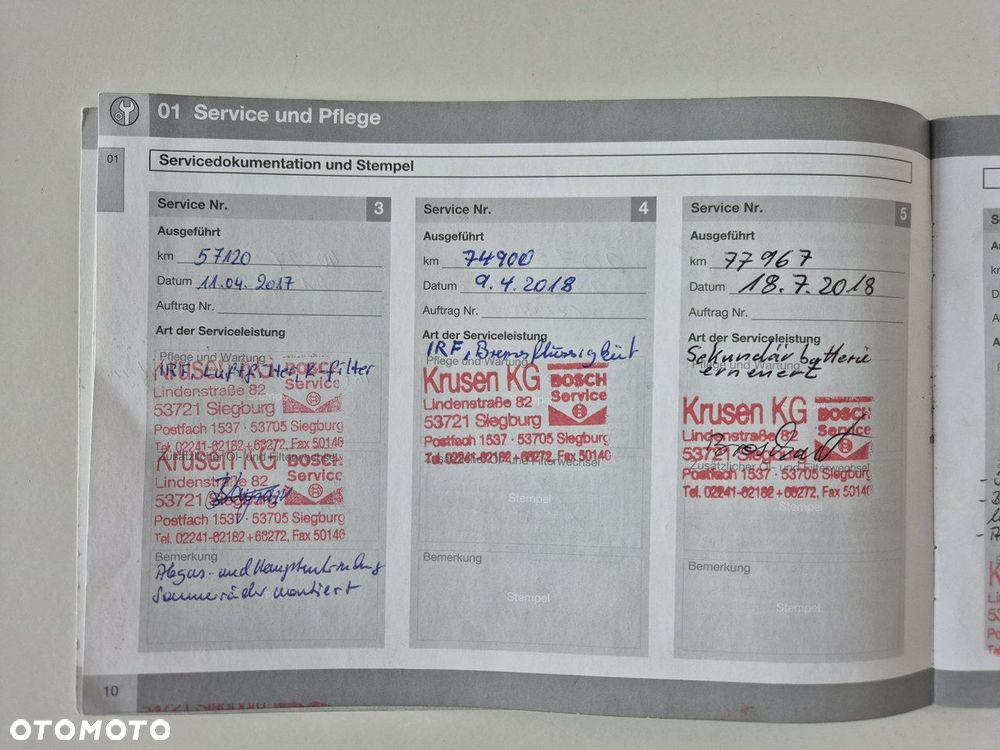 01 Service und Pflege
01
Servicedokumentation und Stempel
Service Nr. 3
Ausgeführt
km 57120
Datum 11.04.2017
Auftrag Nr.
Art der Serviceleistung
Pflege und Wartung
IRF, Luftfilter
Krusen KG BOSCH
Lindenstraße 82 Service
53721 Siegburg
Postfach 1537 · 53705 Siegburg
Tel. 02241-62182+63272, Fax 50140
Zusätzlicher Öl- und Filterwechsel
Krusen KG BOSCH
Lindenstraße 82 Service
53721 Siegburg
Postfach 1537 · 53705 Siegburg
Tel. 02241-62182+63272, Fax 50140
Bemerkung
Abgas- und Hauptuntersuchung
Sommerräder montiert
Service Nr. 4
Ausgeführt
km 74900
Datum 9.4.2018
Auftrag Nr.
Art der Serviceleistung
IRF, Bremsflüssigkeit
Pflege und Wartung
Krusen KG BOSCH
Lindenstraße 82 Service
53721 Siegburg
Postfach 1537 · 53705 Siegburg
Tel. 02241-62182+63272, Fax 50140
Zusätzlicher Öl- und Filterwechsel
Stempel
Bemerkung
Stempel
Service Nr. 5
Ausgeführt
km 77967
Datum 18.7.2018
Auftrag Nr.
Art der Serviceleistung
Sekundärbatterie
Pflege und Wartung
erneuert
Krusen KG BOSCH
Lindenstraße 82 Service
53721 Siegburg
Zusätzlicher Öl- und Filterwechsel
Postfach 1537 · 53705 Siegburg
Tel. 02241-62182+63272, Fax 50140
Stempel
Bemerkung
Stempel
10
OTOMOTO